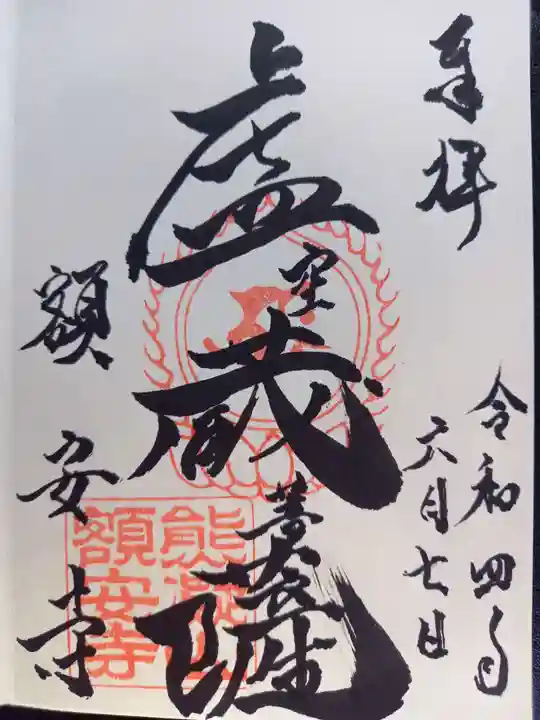 奉拝
令和四年
六月七日
虚空蔵菩薩
額安寺
熊凝
額安寺